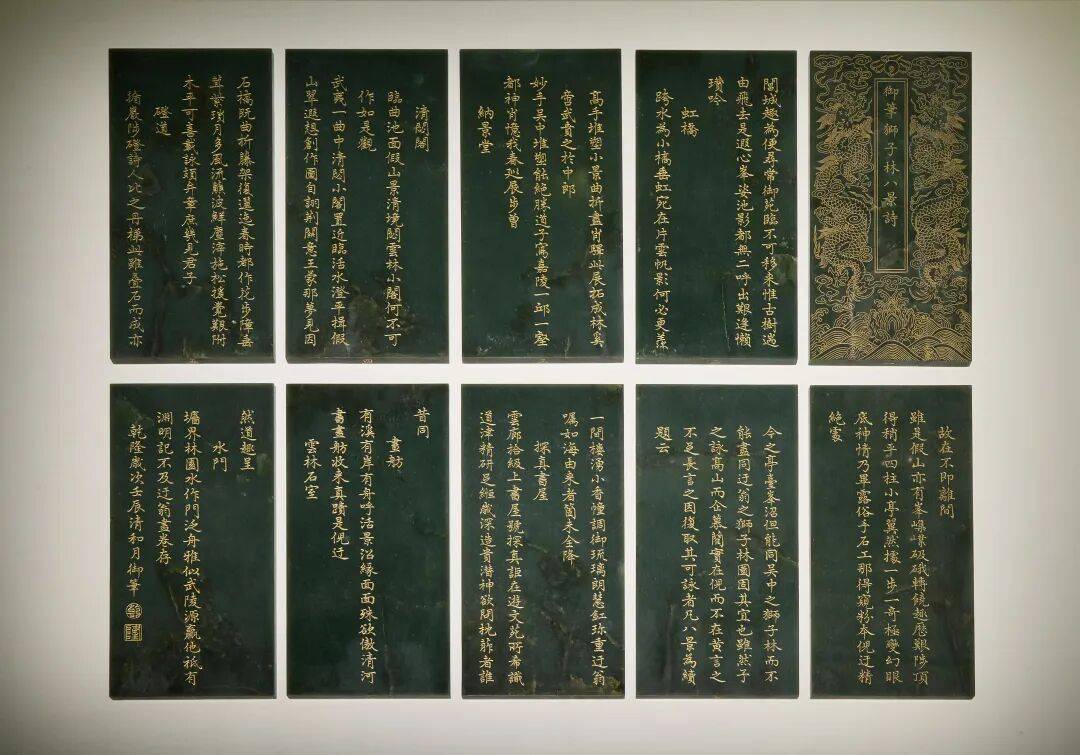 御筆獅子林八景詩
闤城趣為便尋常御苑臨不可移來惟古樹遄
由飛去是遐心峯姿池影都無二呼出艱逢懶
瓚吟
虹橋
跨水為小橋垂虹宛在片雲帆影何必更羡
髙手堆塑小景曲折盡肖此展拓成林奚
啻武賁之於中郎
妙手吳中堆塑能絶勝道子寫嘉陵一邱一壑
都神肖憶我春巡展步曾
納景堂
清閟閣
臨曲池面假山景清境閴雲林小閣何不可
作如是觀
武夷一曲中清閟小閣置近臨活水澄平揖假
山翠遐想創作圖自詡荆關意王蒙那夢見因
石橋既曲折藤架復邐迤春時都作花步障垂
瑣月多風流飄波鮮塵滓拖松後覺艱附
木平可喜載詠頍弁章庶幾見君子
磴道
巖陟磴詩人比之丹梯此雖疊石而成亦
故在不即離間
雖是假山亦有峯轉饒趣應艱陟頂
得稍平四柱小亭翼然據一步一奇極變幻眼
底神情乃畢露俗手石工那得窺粉本倪迂精
絶處
今之亭臺峯沼但能同吳中之獅子林而不
能盡同迂翁之獅子林圖固其宜也雖然予
之詠髙山而企慕藺實在倪而不在黄言之
不足長言之因復取其可詠者凡八景為續
題云
一間樓湧小香幢調御琉璃朗慧釭珎重迂翁
嘱如海由来者箇未全降
探真書屋
雲廊拾級上書屋號探真詎在遊文苑所希識
道津精研足繼歲深造貴潜神欲問者誰
昔同
畫舫
有溪有岸有舟呼活景沿緣面面殊欲倣清河
書畫舫收来真蹟是倪迂
雲林石室
然道趣呈
水門
墻界林園水作門泛舟雅似武陵源贏他祗有
淵明記不及迂翁畫券存
乾隆歲次壬辰清和月御筆